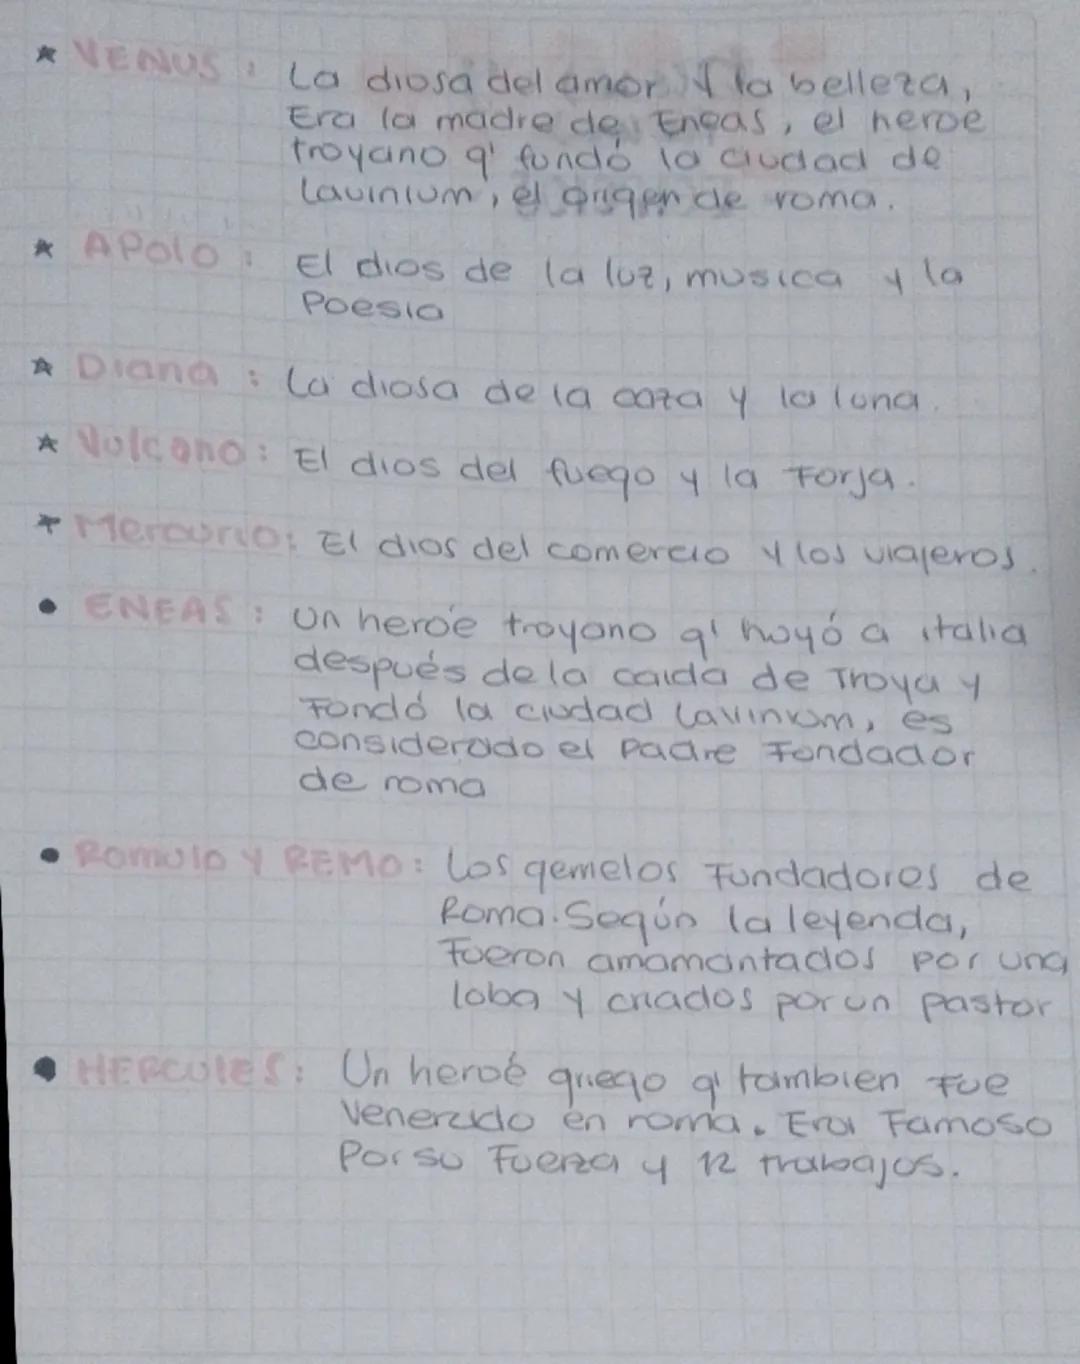 * VENUS : La diosa del amor Y la belleza,
Era la madre de Eneas, el heroe
troyano q' fundó la ciudad de
Lavinium, el origen de roma.
* APOlO : El dios de la luz, musica y la
Poesia
* Diana : La diosa de la caza y la luna.
* Vulcano: El dios del fuego y la Forja.
* Mercurio: El dios del comercio Y los viajeros.
• ENEAS : Un heroé troyano q' huyó a italia
después de la caida de Troya y
Fundó la ciudad Lavinium, es
considerado el Padre Fundador
de roma
• ROMUlO Y REMO: Los gemelos Fundadores de
Roma. Según la leyenda,
Fueron amamantados por una
loba y criados por un pastor
• HERCULES: Un heroé griego q' tambien Fue
Venerado en roma. Era Famoso
Por su Fuerza y 12 trabajos.